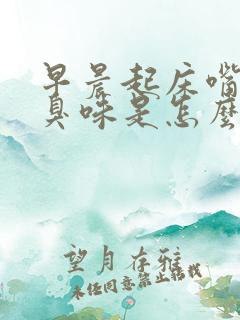 早晨起床嘴
臭味是怎麼
望月存雅
未经同意禁止转载